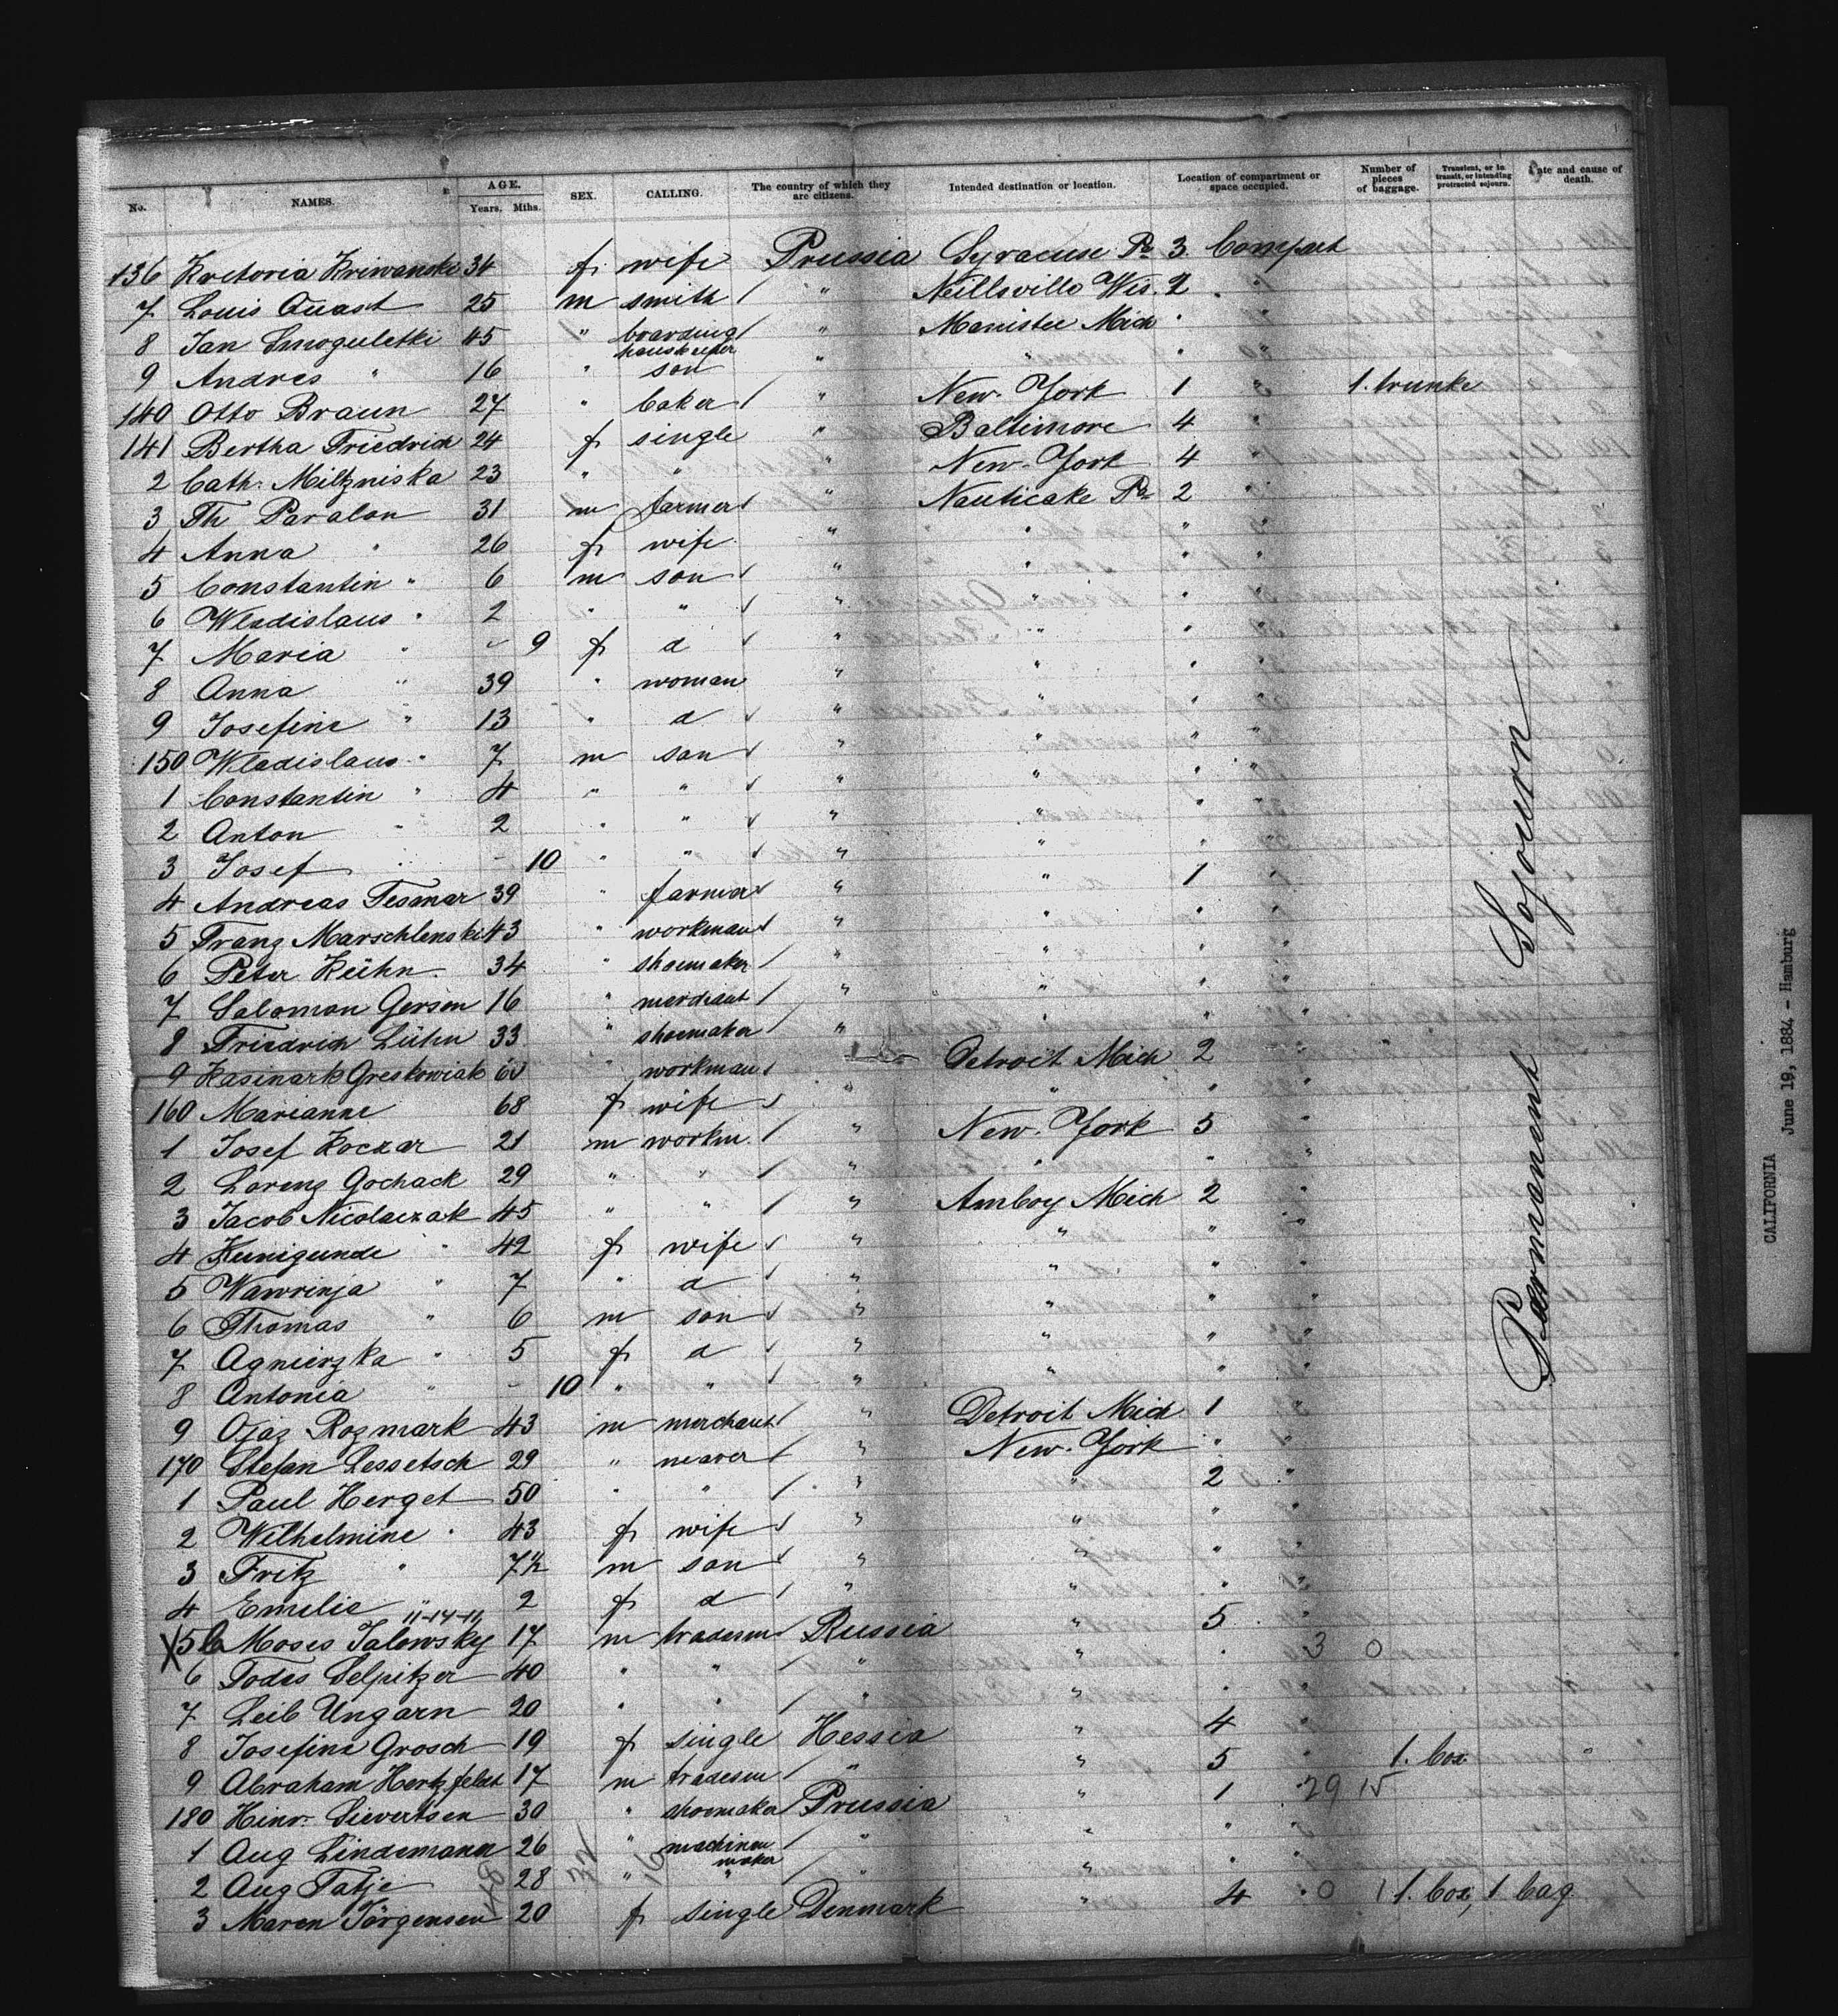 No. NAMES. AGE. Years. Mths. SEX. CALLING. The country of which they are citizens. Intended destination or location. Location of compartment or space occupied. Number of pieces of baggage. Transient, or in transit, or intending protracted sojourn. Date and cause of death.
136 Kretoria Kriwanske 34 f wife Prussia Syracuse Pa 3 Compart
7 Louis Quast 25 m smith / " Neillsville Wis. 2 "
8 Jan Smoguletki 45 " boarding houskeeper / " Manistee Mich " "
9 Andres " 16 " son " " " "
140 Otto Braun 27 " baker / " New-York 1 " 1. trunke
141 Bertha Friedrich 24 f single " Baltimore 4 "
2 Cath. Miltzniska 23 " " " New-York 4 "
3 Th Paralon 31 m farmer " Nauticake Pa 2 "
4 Anna " 26 f wife " " " "
5 Constantin " 6 m son " " " "
6 Wladislaus " 2 " " " " " "
7 Maria " - 9 f d " " " "
8 Anna " 39 " woman " " " "
9 Josefine " 13 " d " " " "
150 Wladislaus " 7 m son " " " "
1 Constantin " 4 " " " " " "
2 Anton " 2 " " " " " "
3 Josef " - 10 " " " " " "
4 Andreas Tesmar 39 " farmer " " 1 "
5 Franz Marschlenski 43 " workman " " " "
6 Peter Kühn 34 " shoemaker / " " " "
7 Salomon Gerson 16 " merchant / " " " "
8 Friedrich Lühn 33 " shoemaker / " " " "
9 Kasimark Greskowiak 60 " workman " Detroit Mich 2 "
160 Marianne 68 f wife " " " "
1 Josef Koczar 21 m workm. / " New-York 5 "
2 Lorenz Gochack 29 " " / " " " "
3 Jacob Nicolaczak 45 " " / " Amboy Mich 2 "
4 Kunigunde " 42 f wife " " " "
5 Wawrinja " 7 " d " " " "
6 Thomas " 6 m son " " " "
7 Agnierzka " 5 f d " " " "
8 Antonia " - 10 " " " " " "
9 Ojaz Rozmark 43 m merchant / " Detroit Mich 1
170 Stefan Lessetsch 29 " weaver / " New-York " "
1 Paul Herget 50 " " / " " 2 "
2 Wilhelmine " 43 f wife " " " "
3 Fritz " 7½ m son " " " "
4 Emelie " 2 f d " " " "
11-14-11
X 5 Moses Jalowsky 17 m tradesm Russia " 5 "
6 Todes Selpitzer 40 " " / " " " 3 0
7 Leib Ungarn 20 " " / " " " "
8 Josefine Grosch 19 f single Hessia " 4 "
9 Abraham Hertzfeldt 17 m tradesm / " " 5 " 1. box "
180 Heinr. Sievertsen 30 " shoemaker / Prussia " 1 29 15
1 Aug Lindemann 26 " machinen maker / " " " "
2 Aug Tatje 28 " " / " " " "
3 Maren Jörgensen 20 f single Denmark " 4 " 0 1 1. box, 1 bag
148 32 16
Parmanent Sojourn
CALIFORNIA June 19, 1884 - Hamburg